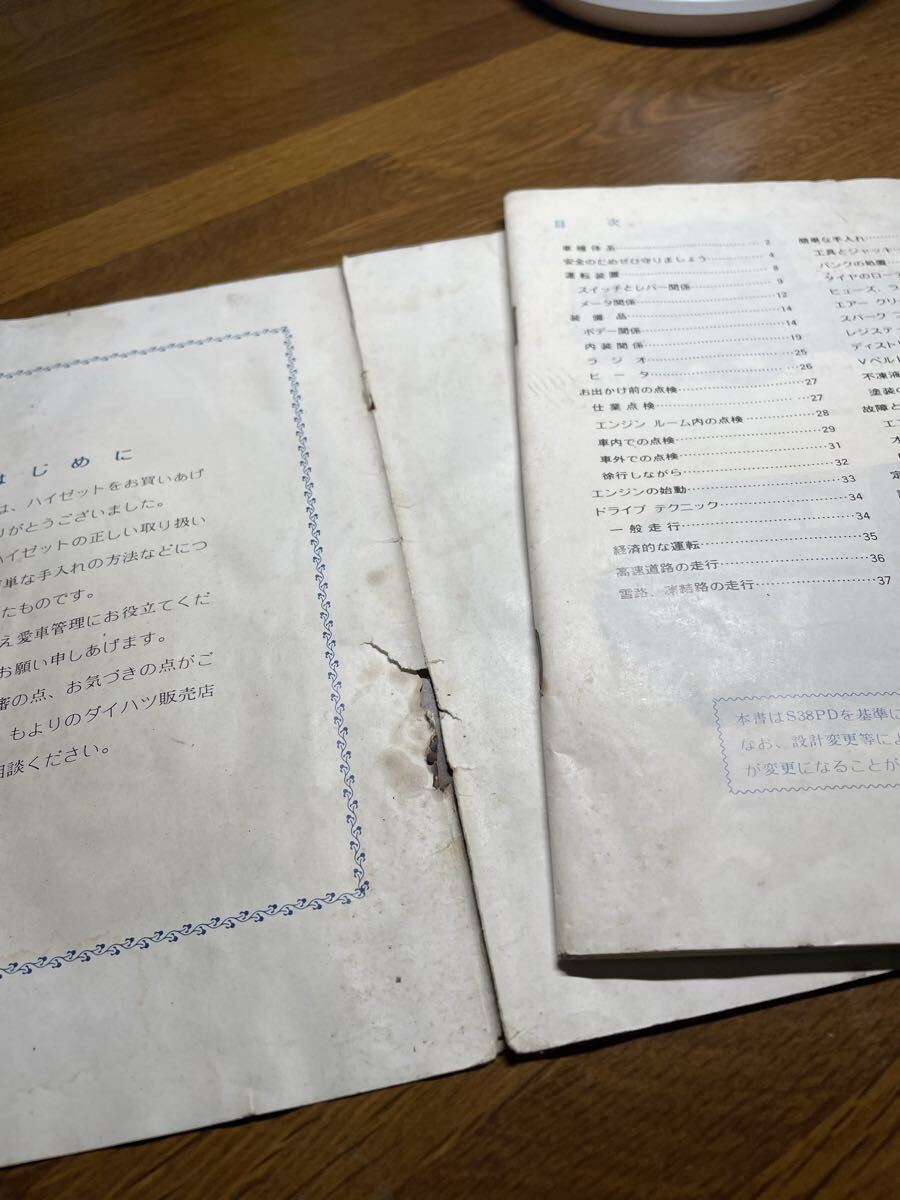 はじめに
は、ハイゼットをお買いあげ
りがとうございました。
ハイゼットの正しい取り扱い
単な手入れの方法などにつ
たものです。
え愛車管理にお役立てくだ
お願い申しあげます。
審の点、お気づきの点がご
もよりのダイハツ販売店
相談ください。
目次
車種体系 2
安全のためぜひ守りましょう 4
運転装置 8
スイッチとレバー関係 9
メータ関係 12
装備品 14
ボデー関係 14
内装関係 19
ラジオ 25
ヒータ 26
お出かけ前の点検 27
仕業点検 27
エンジン ルーム内の点検 28
車内での点検 29
車外での点検 31
徐行しながら 32
エンジンの始動 33
ドライブ テクニック 34
一般走行 34
経済的な運転 35
高速道路の走行 36
雪路、凍結路の走行 37
簡単な手入れ
工具とジャッキ
パンクの処置
タイヤのロー
ヒューズ、ラ
エアー クリ
スパーク プ
レジステ
ディスト
Vベル
不凍液
塗装の
故障と
エ
オ
定
本書はS38PDを基準に
なお、設計変更等によ
が変更になることが